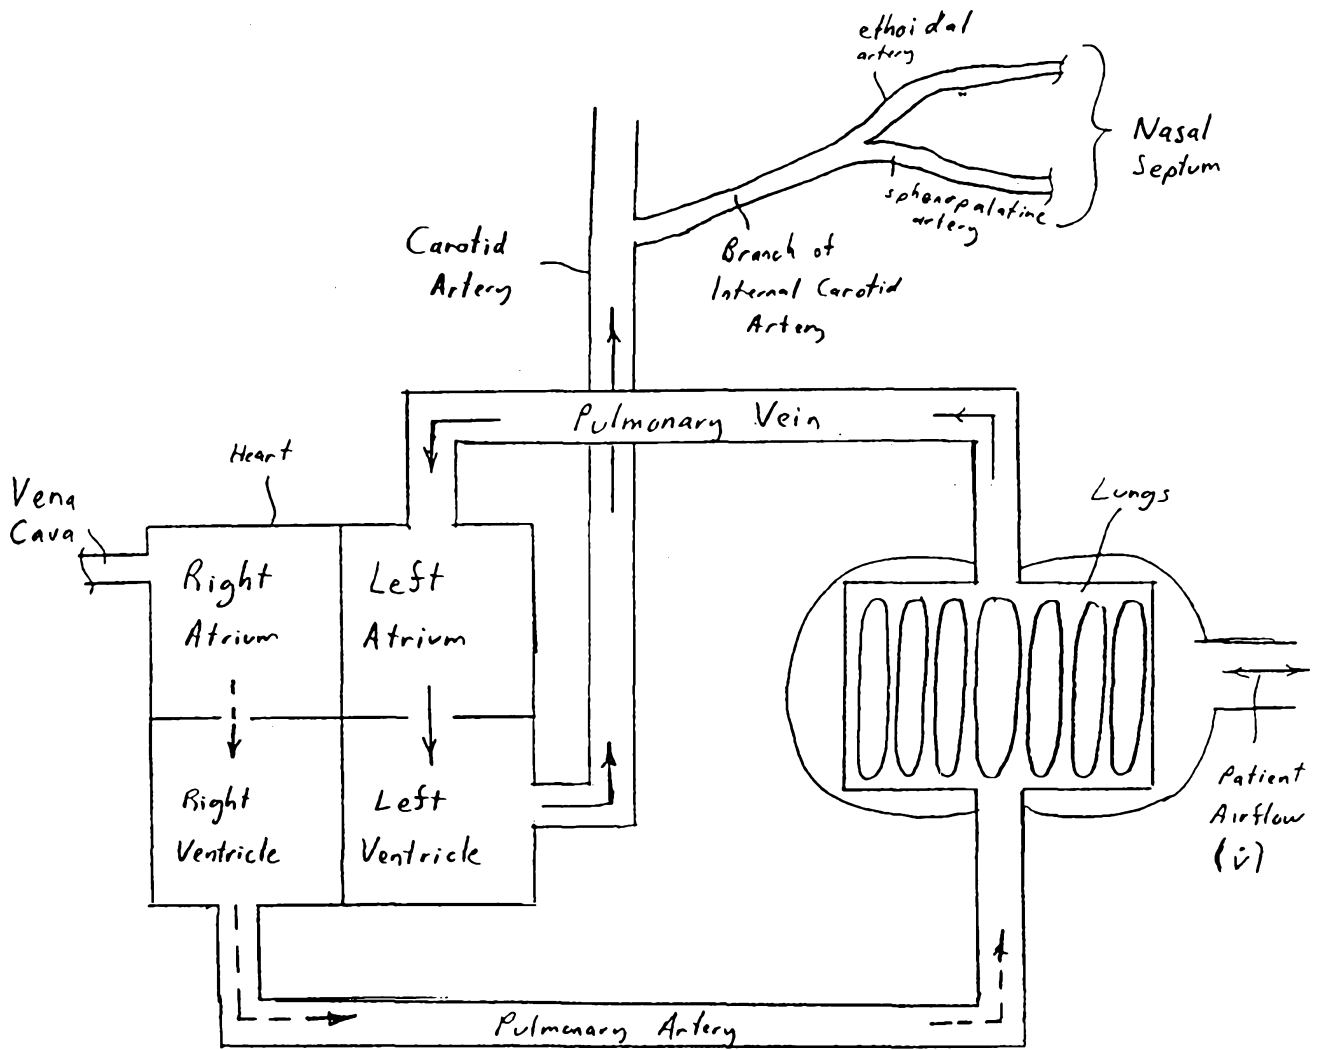 ethoidal
artery
Nasal
Septum
sphenopalatine
artery
Carotid
Artery
Branch of
Internal Carotid
Artery
Pulmonary Vein
Heart
Vena
Cava
Lungs
Right
Atrium
Left
Atrium
Right
Ventricle
Left
Ventricle
Patient
Airflow
(V̇)
Pulmonary Artery